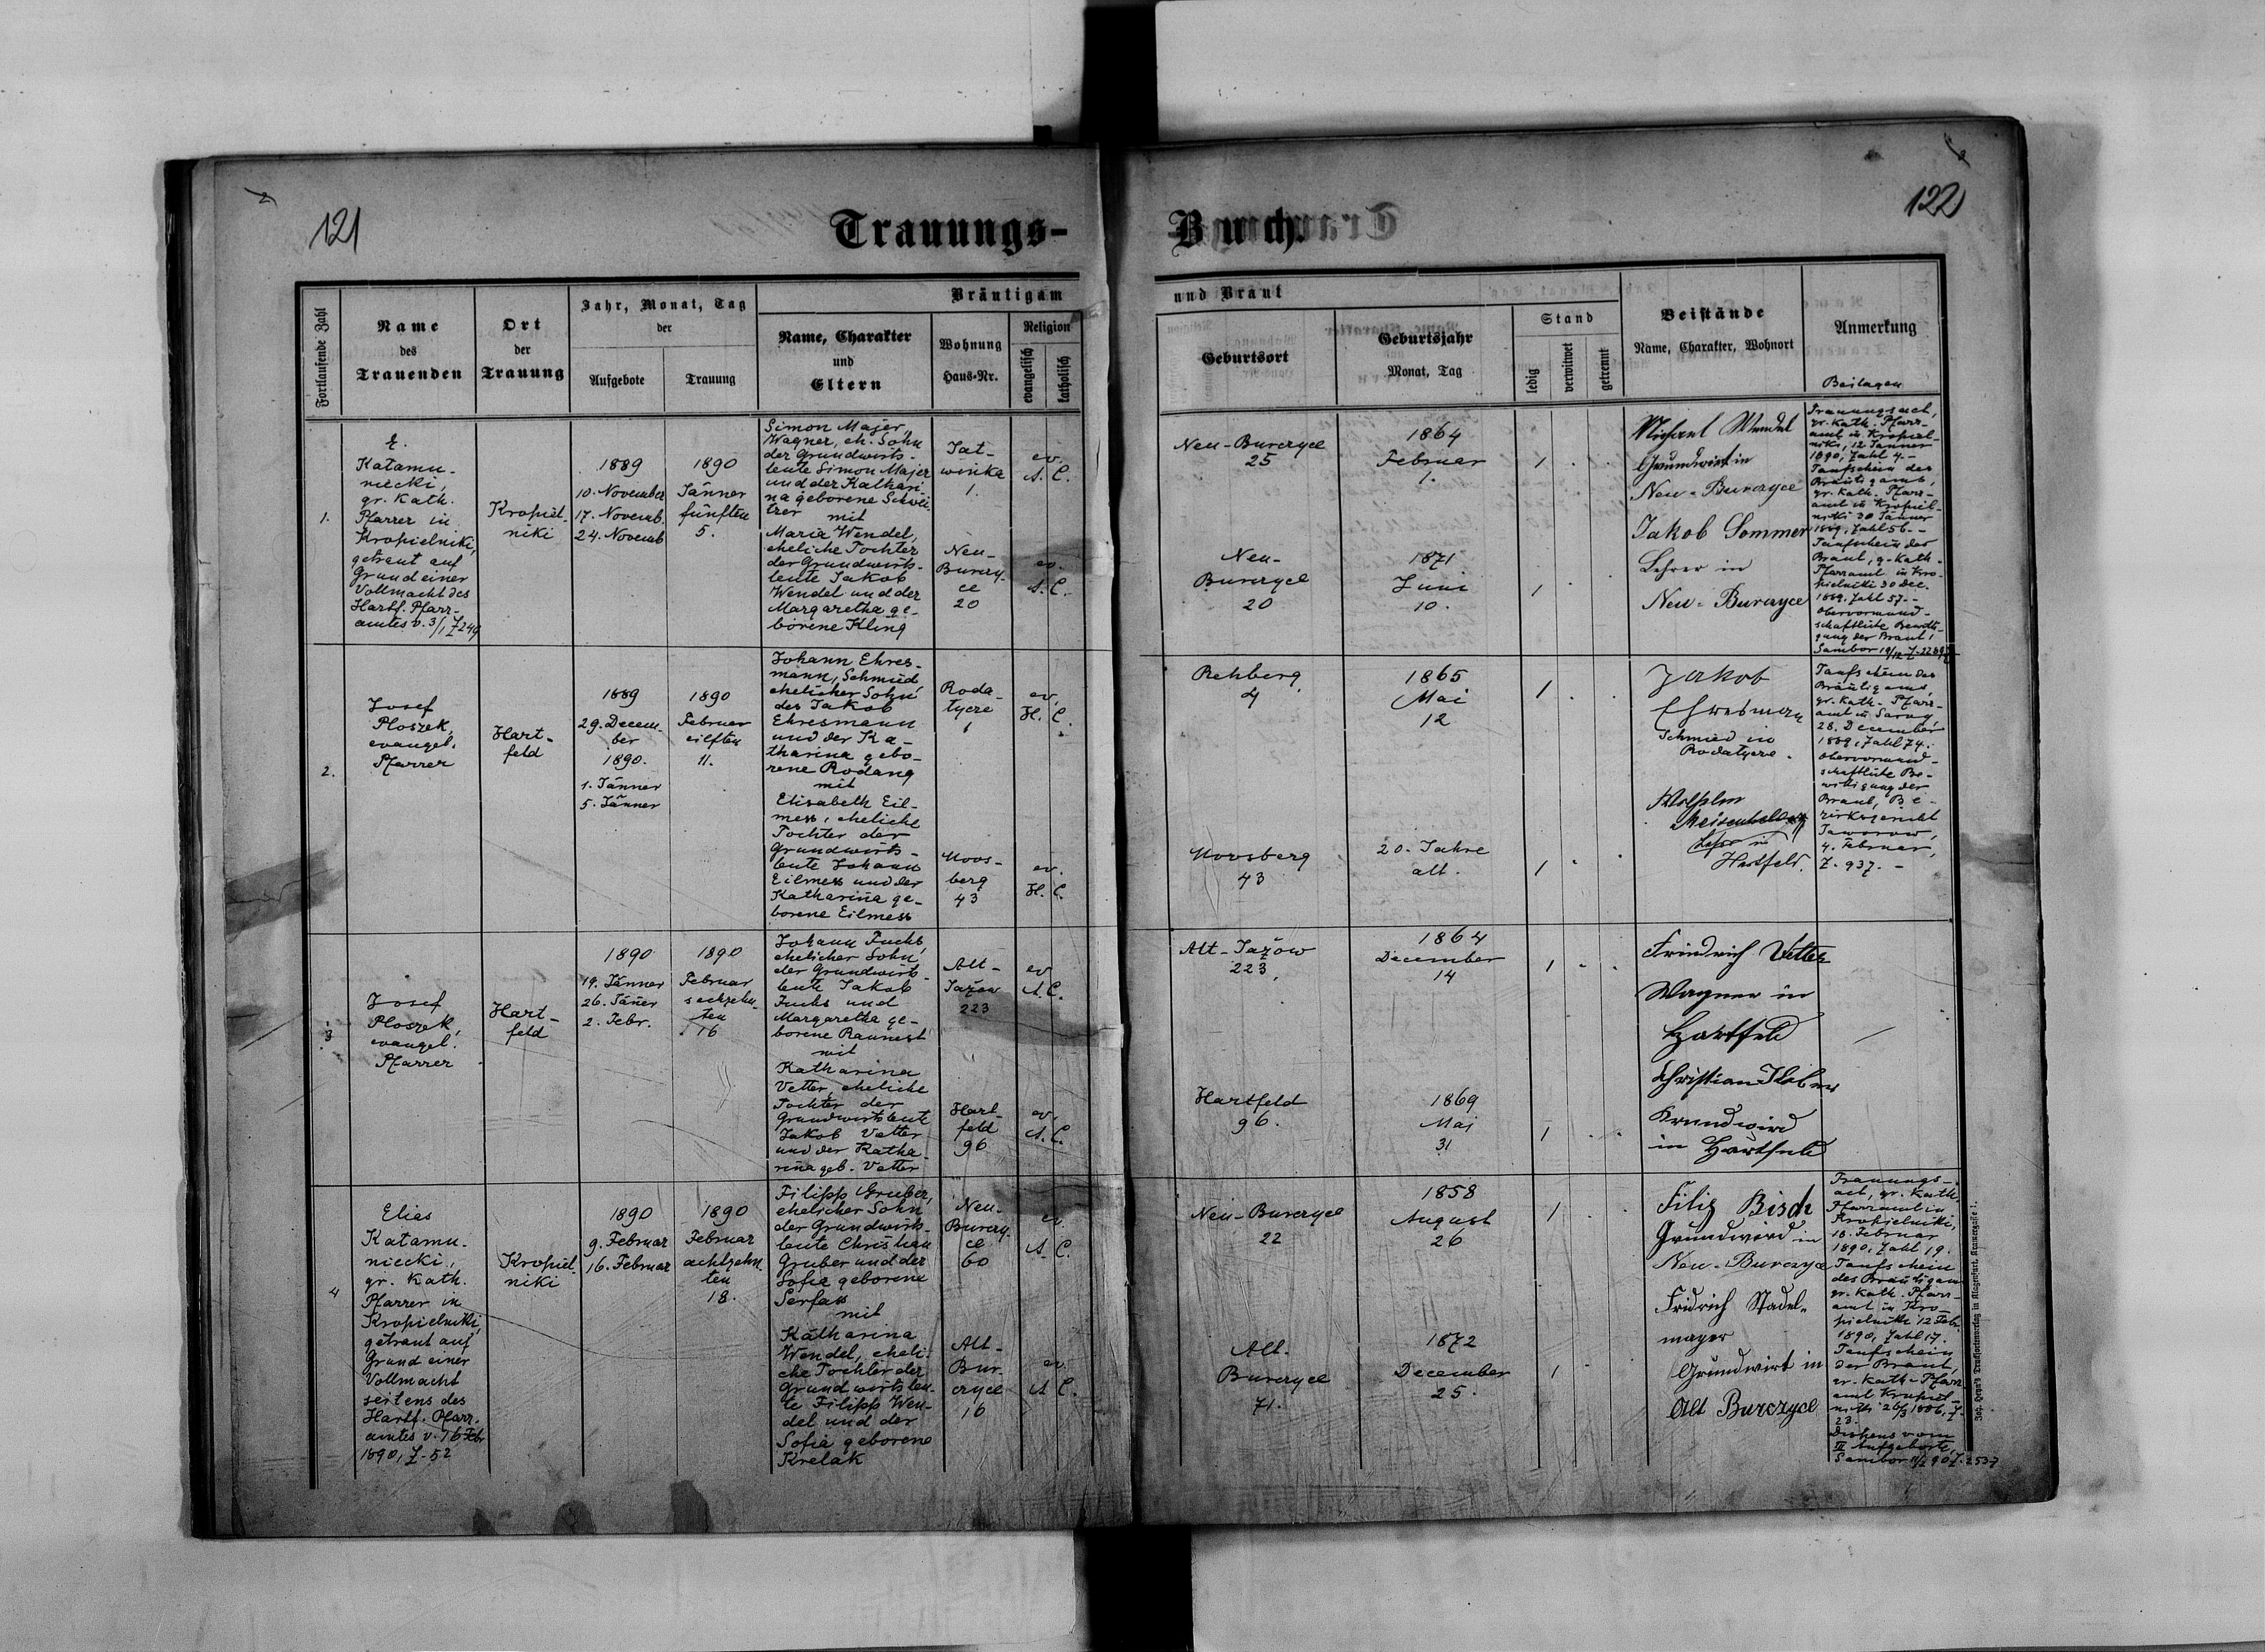 121
122
Trauungs-
Buch.
Fortlaufende Zahl
Name
des
Trauenden
Ort
der
Trauung
Jahr, Monat, Tag
der
Aufgebote
Trauung
Bräutigam
und Braut
Name, Charakter
und
Eltern
Wohnung
Haus-Nr.
Religion
evangelisch
katholisch
Geburtsort
Geburtsjahr
Monat, Tag
Stand
ledig
verwitwet
getrennt
Beistände
Name, Charakter, Wohnort
Anmerkung
Beilagen
1.
E.
Katamu-
niecki,
gr. Kath.
Pfarrer in
Kropielniki,
getraut auf
Grund einer
Vollmacht des
Hartf. Pfarr-
amtes v. 3/1 Z 249
Kropiel-
niki
1889
10. November
17. Novemb.
24. Novemb
1890
Jänner
fünften
5.
Simon Majer,
Wagner, eh. Sohn
der Grundwirts-
leute Simon Majer
und der Kathari
na geborene Schwei
tzer mit
Maria Wendel,
eheliche Tochter
der Grundwirts-
leute Jakob
Wendel und der
Margaretha ge-
borene Kling
Tat-
winka
1.
Neu-
Burczy-
ce
20
ev.
A. C.
ev.
A. C.
Neu-Burczyce
25
Neu-
Burczyce
20
1864
Februar
1.
1871
Juni
10.
1
1
Michael Wendel
Grundwirt in
Neu-Burczyce
Jakob Sommer
Lehrer in
Neu-Burczyce
Trauungsact,
gr. Kath. Pfarr-
amt in Kropiel-
niki, 12 Jänner
1890, Zahl 4.-
Taufschein des
Bräutigams,
gr. Kath. Pfarr-
amt in Kropiel-
niki 30 Jänner
1889, Zahl 56.-
Taufschein der
Braut, gr. Kath-
Pfarramt in Kro-
pielniki 30 Dec.
1889. Zahl 57.-
Obervormund-
schaftliche Bewilli-
gung der Braut,
2.
Josef
Ploszek,
evangel.
Pfarrer
Hart-
feld
1889
29. Decem-
ber
1890.
1. Jänner
5. Jänner
1890
Februar
eilften
11.
Johann Ehres-
mann, Schmied
ehelicher Sohn
des Jakob
Ehresmann
und der Ka-
tharina gebo-
rene Rodang
mit
Elisabeth Eil-
mess, eheliche
Tochter der
Grundwirts-
leute Johann
Eilmess und der
Katharina ge-
borene Eilmess
Roda-
tycze
1
Moos-
berg
43
ev.
H. C.
ev.
H. C.
Rehberg
4
Moosberg
43
1865
Mai
12
20. Jahre
alt.
1
1
Jakob
Ehresman
Schmied in
Rodatycze.
Lehrer in
Hartfeld.
Taufschein des
Bräutigams,
gr. Kath. Pfarr-
amt in
28. December
1889, Zahl 74.
Obervormund-
schaftliche Be-
willigung der
Braut, Be-
zirksgericht
Jaworow,
4. Februar,
Z. 937.-
3
Josef
Ploszek,
evangel.
Pfarrer
Hart-
feld
1890
19. Jänner
26. Jäner
2. Febr.
1890
Februar
sechzehn
ten
16
Johann Fuchs,
ehelicher Sohn
der Grundwirts-
leute Jakob
Fuchs und
Margaretha ge-
borene Raunest
mit
Katharina
Vetter, eheliche
Tochter der
Grundwirtsleute
Jakob Vetter
und der Katha-
rina geb. Vetter
Alt-
Jazow
223
Hart-
feld
96
ev.
A. C.
ev.
A. C.
Alt-Jazów
223.
Hartfeld
96.
1864
December
14
1869
Mai
31
1
1
Friedrich Vetter
Wagner in
Hartfeld
Christian
Grundwird
in Hartfeld
4
Elias
Katamu-
niecki,
gr. Kath.
Pfarrer in
Kropielniki,
getraut auf
Grund einer
Vollmacht
seitens des
Hartf. Pfarr-
amtes v. 16 Febr
1890, Z. 52
Kropiel-
niki
1890
9. Februar
16. Februar
1890
Februar
achtzehn
ten
18.
Filipp Gruber,
ehelicher Sohn
der Grundwirts-
leute Christian
Gruber und der
Sofia geborene
Serfass
mit
Katharina
Wendel, eheli-
che Tochter der
Grundwirtsleu-
te Filipp Wen-
del und der
Sofia geborene
Krelak
Neu-
Burczy-
ce
60
Alt-
Bur-
czyce
16
ev.
A. C.
ev.
A. C.
Neu-Burczyce
22
Alt-
Burczyce
71.
1858
August
26
1872
December
25.
1
1
Filip Bisch
Grundwird in
Neu-Burczyce
Fridrich Stadel-
mayer
Grundwirt in
Alt Burczyce
Trauungs-
act, gr. Kath.
Pfarramt in
Kropielniki,
18. Februar
1890, Zahl 19.
Taufschein
des Bräutigam
gr. Kath. Pfarr-
amt in Kro-
pielniki 12 Feb.
1890, Zahl 17.
Taufschein
der Braut,
gr. Kath- Pfarr-
amt Kropiel-
niki 26/3 1886, Z.
23.
Dispens vom
III Aufgebote,
Joh. Heyn's Drucksortenverlag in Klagenfurt, Kramergasse 1.